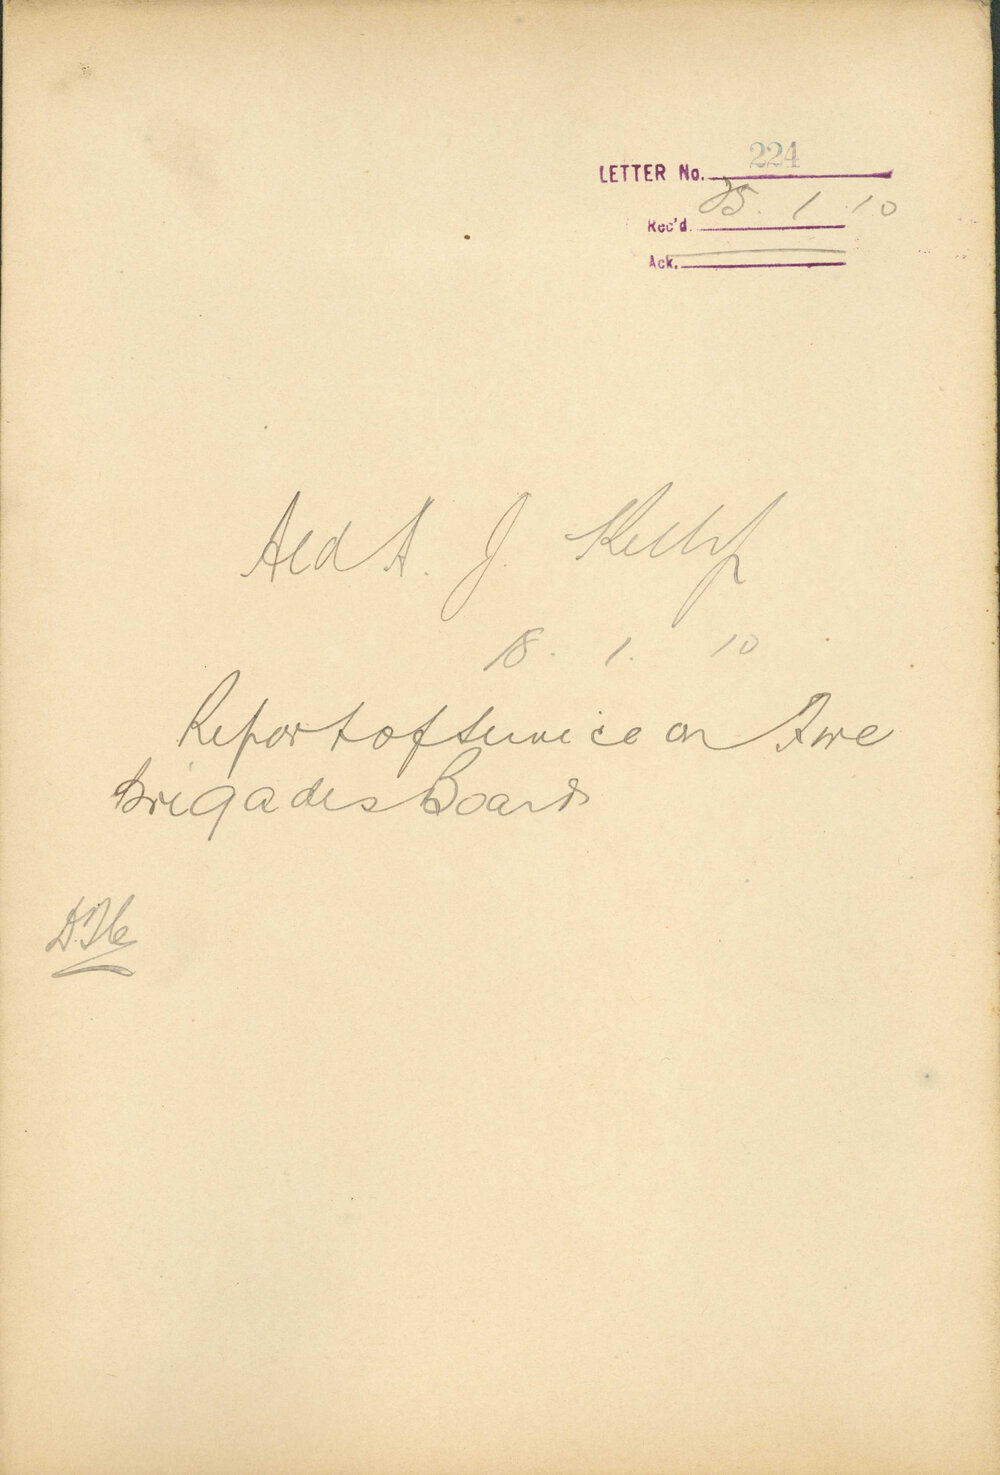 LETTER No. 224
Rec'd. 25. 1. 10
Ack.
Ald A. J. Kelly
18. 1. 10
Report of service on Fire
Brigades Board